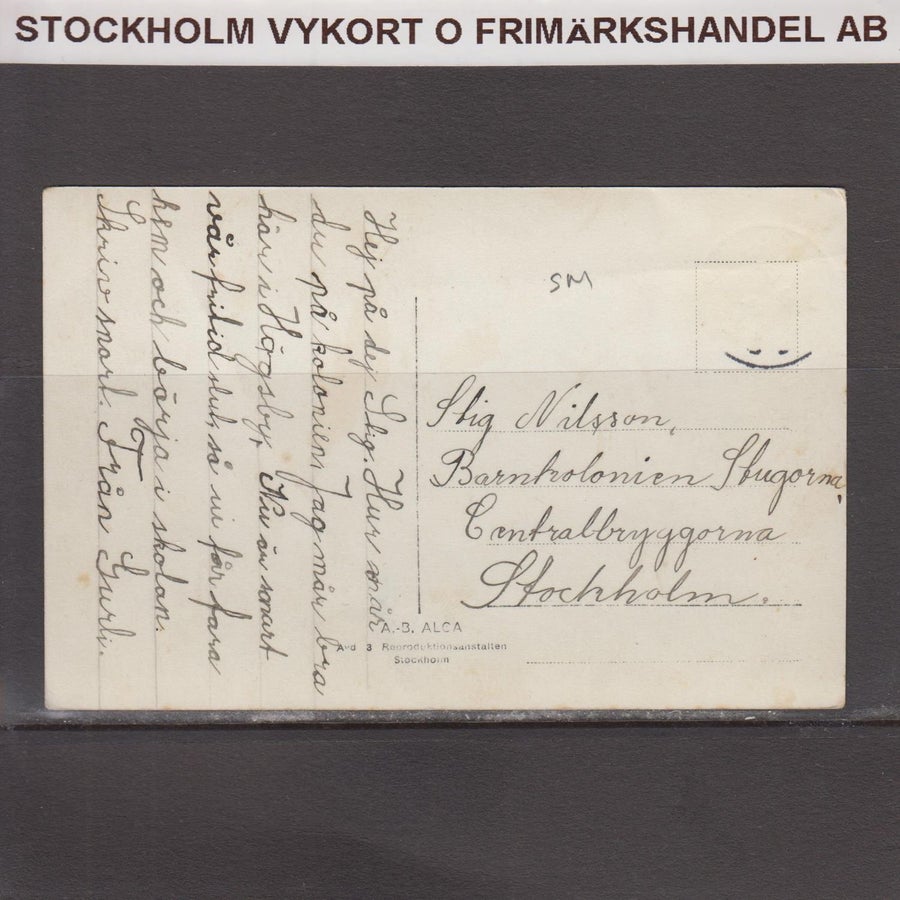 STOCKHOLM VYKORT O FRIMÄRKSHANDEL AB
Hej på dej Stig. Hur mår
du på kolonien, Jag mår bra
här i Högsby, Nu är snart
vår fritid slut, så vi får fara
hem och börja i skolan.
Skriv snart. Från Gurli.
SM
Stig Nilsson,
Barnkolonien Stugorna,
Centralbryggorna
Stockholm.
A.-B. ALCA
Avd 3 Reproduktionsanstalten
Stockholm